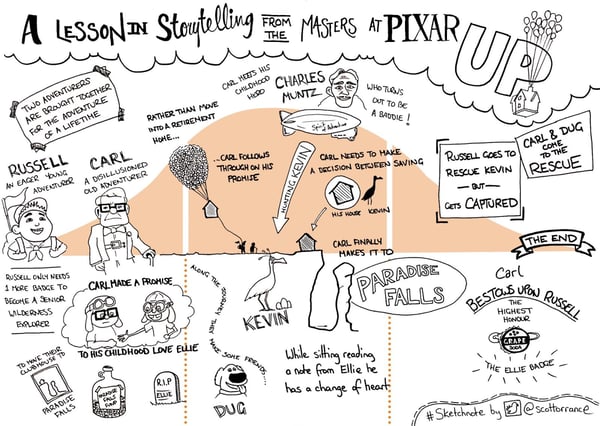 A LESSON IN Storytelling FROM THE MASTERS AT PIXAR
UP
TWO ADVENTURERS
ARE BROUGHT TOGETHER
FOR THE ADVENTURE
OF A LIFETIME
RUSSELL
AN EAGER YOUNG
ADVENTURER
CARL
A DISILLUSIONED
OLD ADVENTURER
RUSSELL ONLY NEEDS
1 MORE BADGE TO
BECOME A SENIOR
WILDERNESS
EXPLORER
CARL MADE A PROMISE
TO HIS CHILDHOOD LOVE ELLIE
TO MOVE THEIR
CLUBHOUSE TO
PARADISE
FALLS
PARADISE
FALLS
FUND
R.I.P
ELLIE
RATHER THAN MOVE
INTO A RETIREMENT
HOME...
...CARL FOLLOWS
THROUGH ON HIS
PROMISE
CARL MEETS HIS
CHILDHOOD
HERO
CHARLES
MUNTZ
WHO TURNS
OUT TO BE
A BADDIE!
Spirit of Adventure
HUNTING KEVIN
CARL NEEDS TO MAKE
A DECISION BETWEEN SAVING
HIS HOUSE
KEVIN
ALONG THE
JOURNEY THEY
MAKE SOME FRIENDS...
KEVIN
DUG
CARL FINALLY
MAKES IT TO
PARADISE
FALLS
While sitting reading
a note from Ellie he
has a change of heart
RUSSELL GOES TO
RESCUE KEVIN
— BUT —
GETS CAPTURED
CARL & DUG
COME
TO THE
RESCUE
THE END
Carl
BESTOWS UPON RUSSELL
THE
HIGHEST
HONOUR
GRAPE
SODA
- THE ELLIE BADGE -
#Sketchnote by @scottorrance